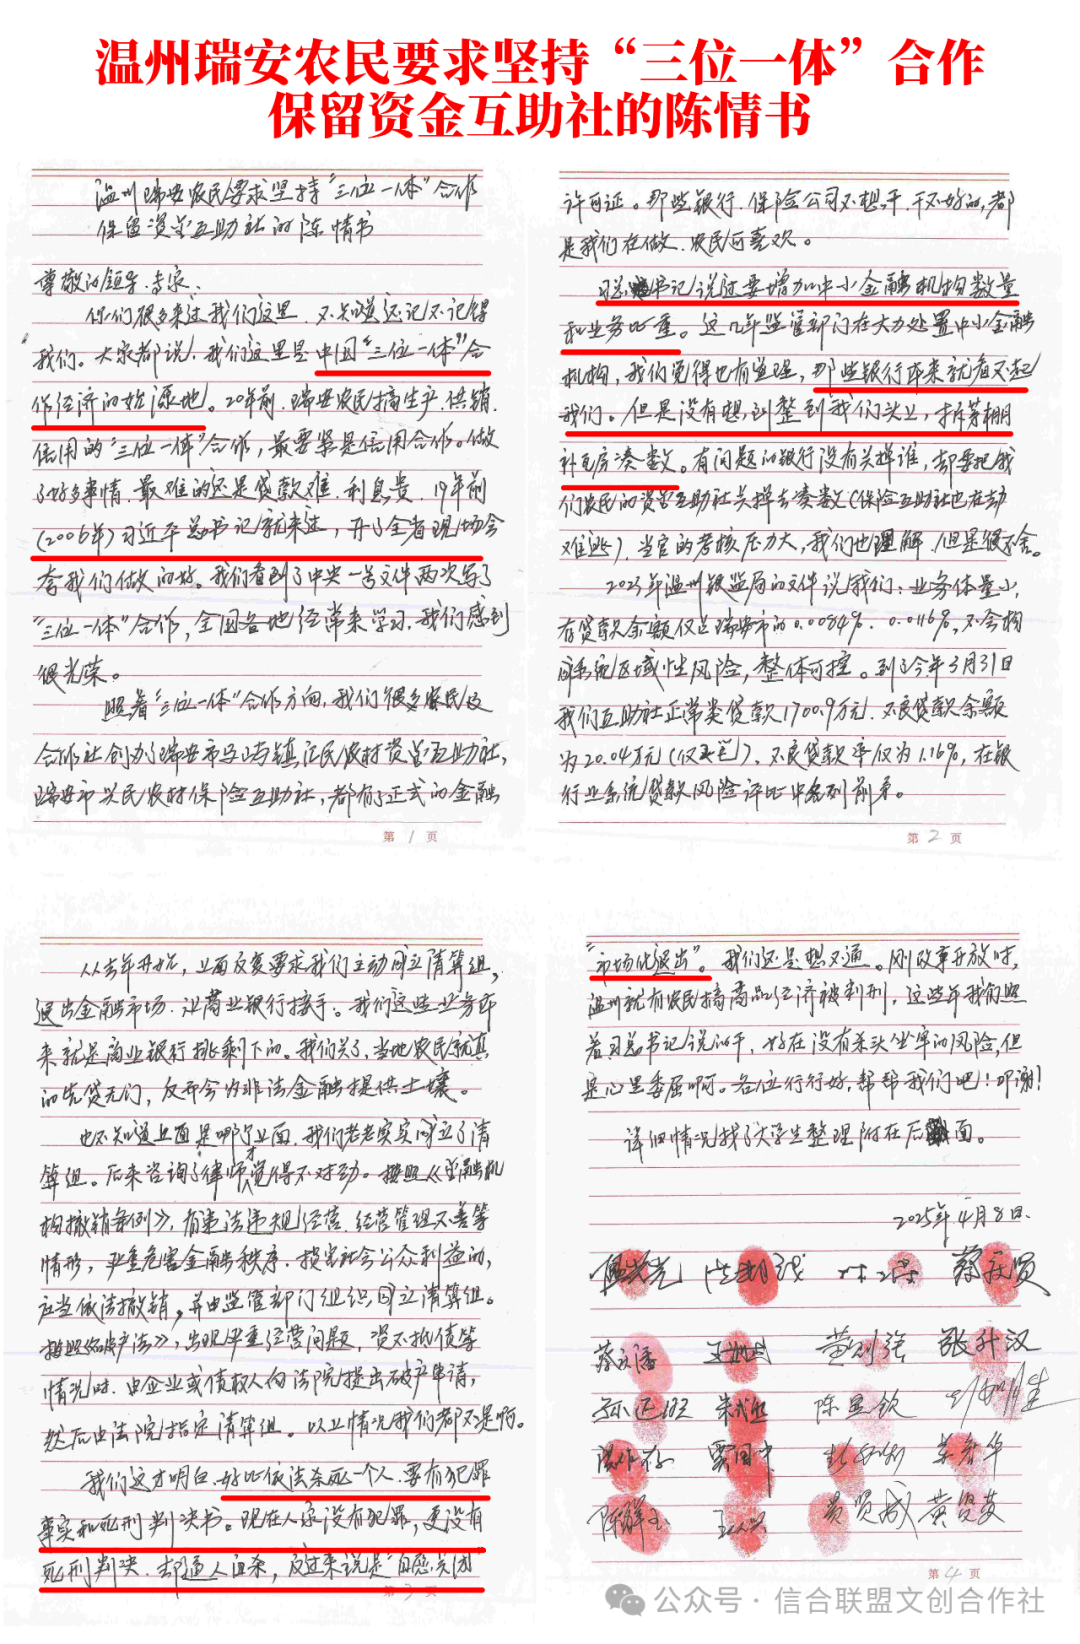 温州瑞安农民要求坚持“三位一体”合作
保留资金互助社的陈情书
温州瑞安农民要求坚持“三位一体”合作
保留资金互助社的陈情书
尊敬的领导、专家、
你们很多来过我们这里,不知道还记不记得
我们。大家都说,我们这里是中国“三位一体”合
作经济的始源地。20年前,瑞安农民搞生产、供销、
信用的“三位一体”合作,最要紧是信用合作。做
了好多事情,最难的还是贷款难、利息贵,19年前
(2006年)习近平总书记就来过,开了全省现场会
夸我们做的好。我们看到了中央一号文件两次写了
“三位一体”合作,全国各地经常来学习,我们感到
很光荣。
照着“三位一体”合作方向,我们很多农民及
合作社创办了瑞安市马屿镇汇民农村资金互助社,
瑞安市兴民农村保险互助社,都有正式的金融
第1页
许可证。那些银行、保险公司不想干、干不好的,都
是我们在做,农民可喜欢。
习总书记说过要增加中小金融机构数量
和业务比重。这几年监管部门在大力处置中小金融
机构,我们觉得也有道理,那些银行本来就看不起
我们。但是没有想到整到我们头上,拆茅棚
补瓦房凑数。有问题的银行没有关掉谁,却要把我
们农民的资金互助社关掉去凑数(保险互助社也在劫
难逃),当官的考核压力大,我们也理解,但是很不舍。
2023年温州银监局的文件说我们:业务体量小,
存贷款余额仅占瑞安市的0.0084%、0.0116%,不会构
成系统区域性风险,整体可控。到了今年3月31日
我们互助社正常类贷款1700.9万元,不良贷款余额
为20.04万元(仅3笔),不良贷款率仅为1.16%,在银
行业系统贷款风险评比中名列前茅。
第2页
从去年开始,上面反复要求我们主动成立清算组,
退出金融市场,让商业银行接手。我们这些业务本
来就是商业银行挑剩下的。我们关了,当地农民就真
的告贷无门,反而会为非法金融提供土壤。
也不知道上面是哪个上面,我们老老实实成立了清
算组。后来咨询了律师才觉得不对劲。按照《金融机
构撤销条例》,有违法违规经营、经营管理不善等
情形,严重危害金融秩序、损害社会公众利益的,
应当依法撤销,并由监管部门组织成立清算组。
按照《破产法》,出现严重经营问题,资不抵债等
情况时,由企业或债权人向法院提出破产申请,
然后由法院指定清算组。以上情况我们都不是啊。
我们这才明白,好比依法杀死一个人,要有犯罪
事实和死刑判决书。现在人家没有犯罪,更没有
死刑判决,却逼人自杀,反过来说是“自愿关闭”
第3页
“市场化退出”。我们还是想不通。刚改革开放时,
温州就有农民搞商品经济被判刑,这些年我们照
着习总书记说的干,好在没有杀头坐牢的风险,但
是心里委屈啊。各位行行好,帮帮我们吧!叩谢!
详细情况找了大学生整理附在后面。
2025年4月8日
蔡庆贤
黄则强 张升汉
陈显钦
黄贤成 黄贤英
第4页
公众号·信合联盟文创合作社